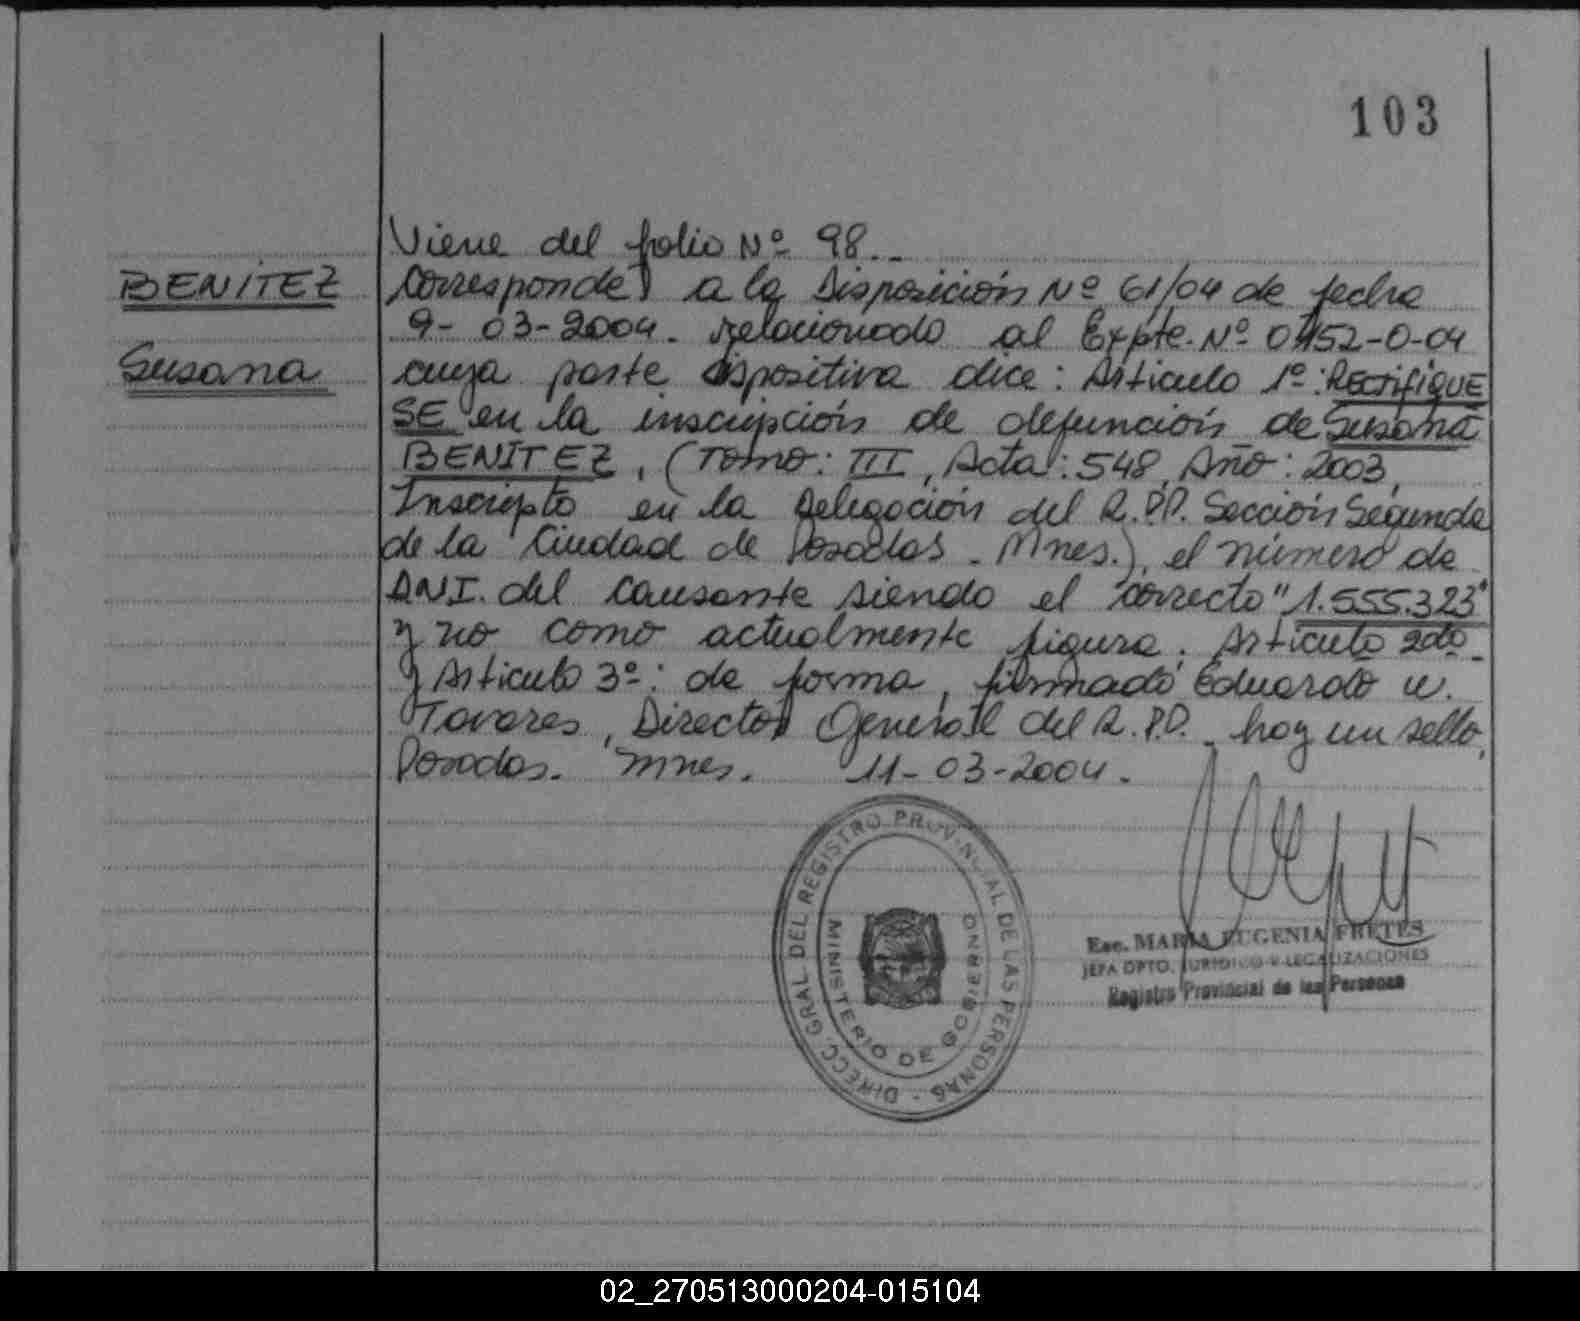 103
BENITEZ
Susana
Viene del folio Nº 98.-
Corresponde a la Disposición Nº 61/04 de fecha
9-03-2004. relacionado al Expte. Nº 0152-0-04
cuya parte dispositiva dice: Artículo 1º: RECTIFIQUE
SE en la inscripción de defunción de Susana
BENITEZ, (Tomo: III, Acta: 548, Año: 2003,
Inscripto en la Delegación del R.P.P. Sección Segunda
de la Ciudad de Posadas - Mnes.), el número de
DNI. del causante siendo el correcto "1.555.323"
y no como actualmente figura. Artículo 2do
y Artículo 3º: de forma, firmado Eduardo W.
Tavares, Director General del R.P.P. hay un sello,
Posadas. Mnes. 11-03-2004.
DIRECC. GRAL. DEL REGISTRO PROVINCIAL DE LAS PERSONAS -
MINISTERIO DE GOBIERNO
Esc. MARIA EUGENIA FRETES
JEFA DPTO. JURIDICO Y LEGALIZACIONES
Registro Provincial de las Personas
02_270513000204-015104